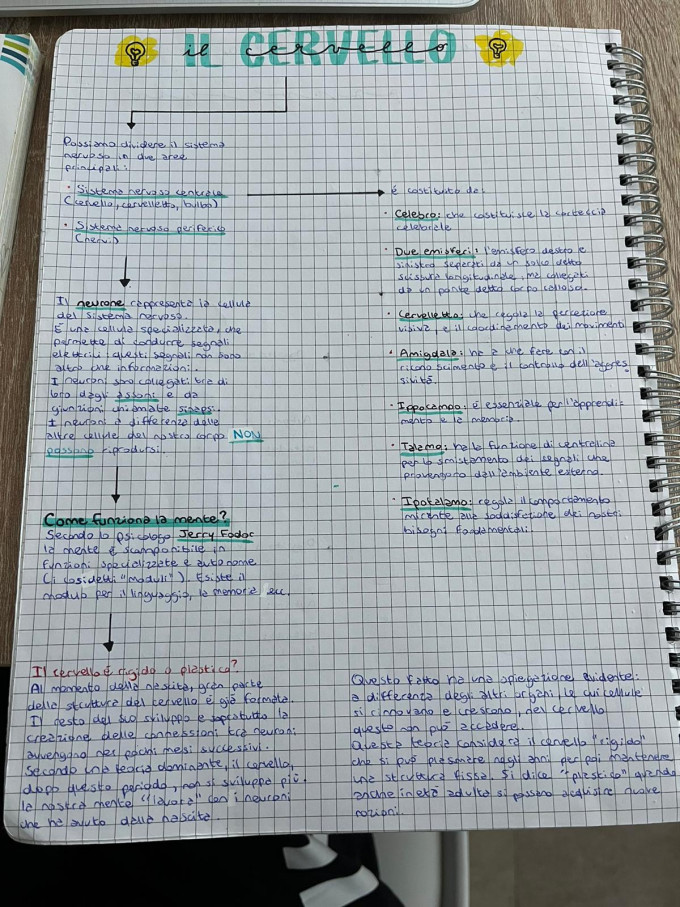 il cervello
IL CERVELLO
Possiamo dividere il sistema
nervoso in due aree
principali:
· Sistema nervoso centrale
(cervello, cervelletto, bulbo)
· Sistema nervoso periferico
(nervi)
Il neurone rappresenta la cellula
del sistema nervoso.
È una cellula specializzata, che
permette di condurre segnali
elettrici: questi segnali non sono
altro che informazioni.
I neuroni sono collegati tra di
loro dagli assoni e da
giunzioni chiamate sinapsi.
I neuroni a differenza delle
altre cellule del nostro corpo NON
possono riprodursi.
Come funziona la mente?
Secondo lo psicologo Jerry Fodor
la mente è scomponibile in
funzioni specializzate e autonome
(i cosidetti "moduli"). Esiste il
modulo per il linguaggio, la memoria ecc.
è costituito da:
· Celebro: che costituisce la corteccia
celebrale
· Due emisferi: l'emisfero destro e
sinistro separati da un solco detto
scissura longitudinale, ma collegati
da un ponte detto corpo calloso.
· Cervelletto: che regola la percezione
visiva, e il coordinamento dei movimenti
· Amigdala: ha a che fare con il
riconoscimento e il controllo dell'aggres
sività.
· Ippocampo: è essenziale per l'apprendi-
mento e la memoria.
· Talamo: ha la funzione di centralina
per lo smistamento dei segnali che
provengono dall'ambiente esterno.
· Ipotalamo: regola il comportamento
mirante alla soddisfazione dei nostri
bisogni fondamentali.
Il cervello è rigido o plastico?
Al momento della nascita, gran parte
della struttura del cervello è già formata.
Il resto del suo sviluppo e soprattutto la
creazione delle connessioni tra neuroni
avvengono nei pochi mesi successivi.
Secondo una teoria dominante, il cervello,
dopo questo periodo, non si sviluppa più.
la nostra mente "lavora" con i neuroni
che ha avuto dalla nascita.
Questo fatto ha una spiegazione evidente:
a differenza degli altri organi, le cui cellule
si rinnovano e crescono, nel cervello
questo non può accadere.
Questa teoria considera il cervello "rigido"
che si può plasmare negli anni per poi mantenere
una struttura fissa. Si dice "plastico" quando
anche in età adulta si possano acquisire nuove
nozioni.